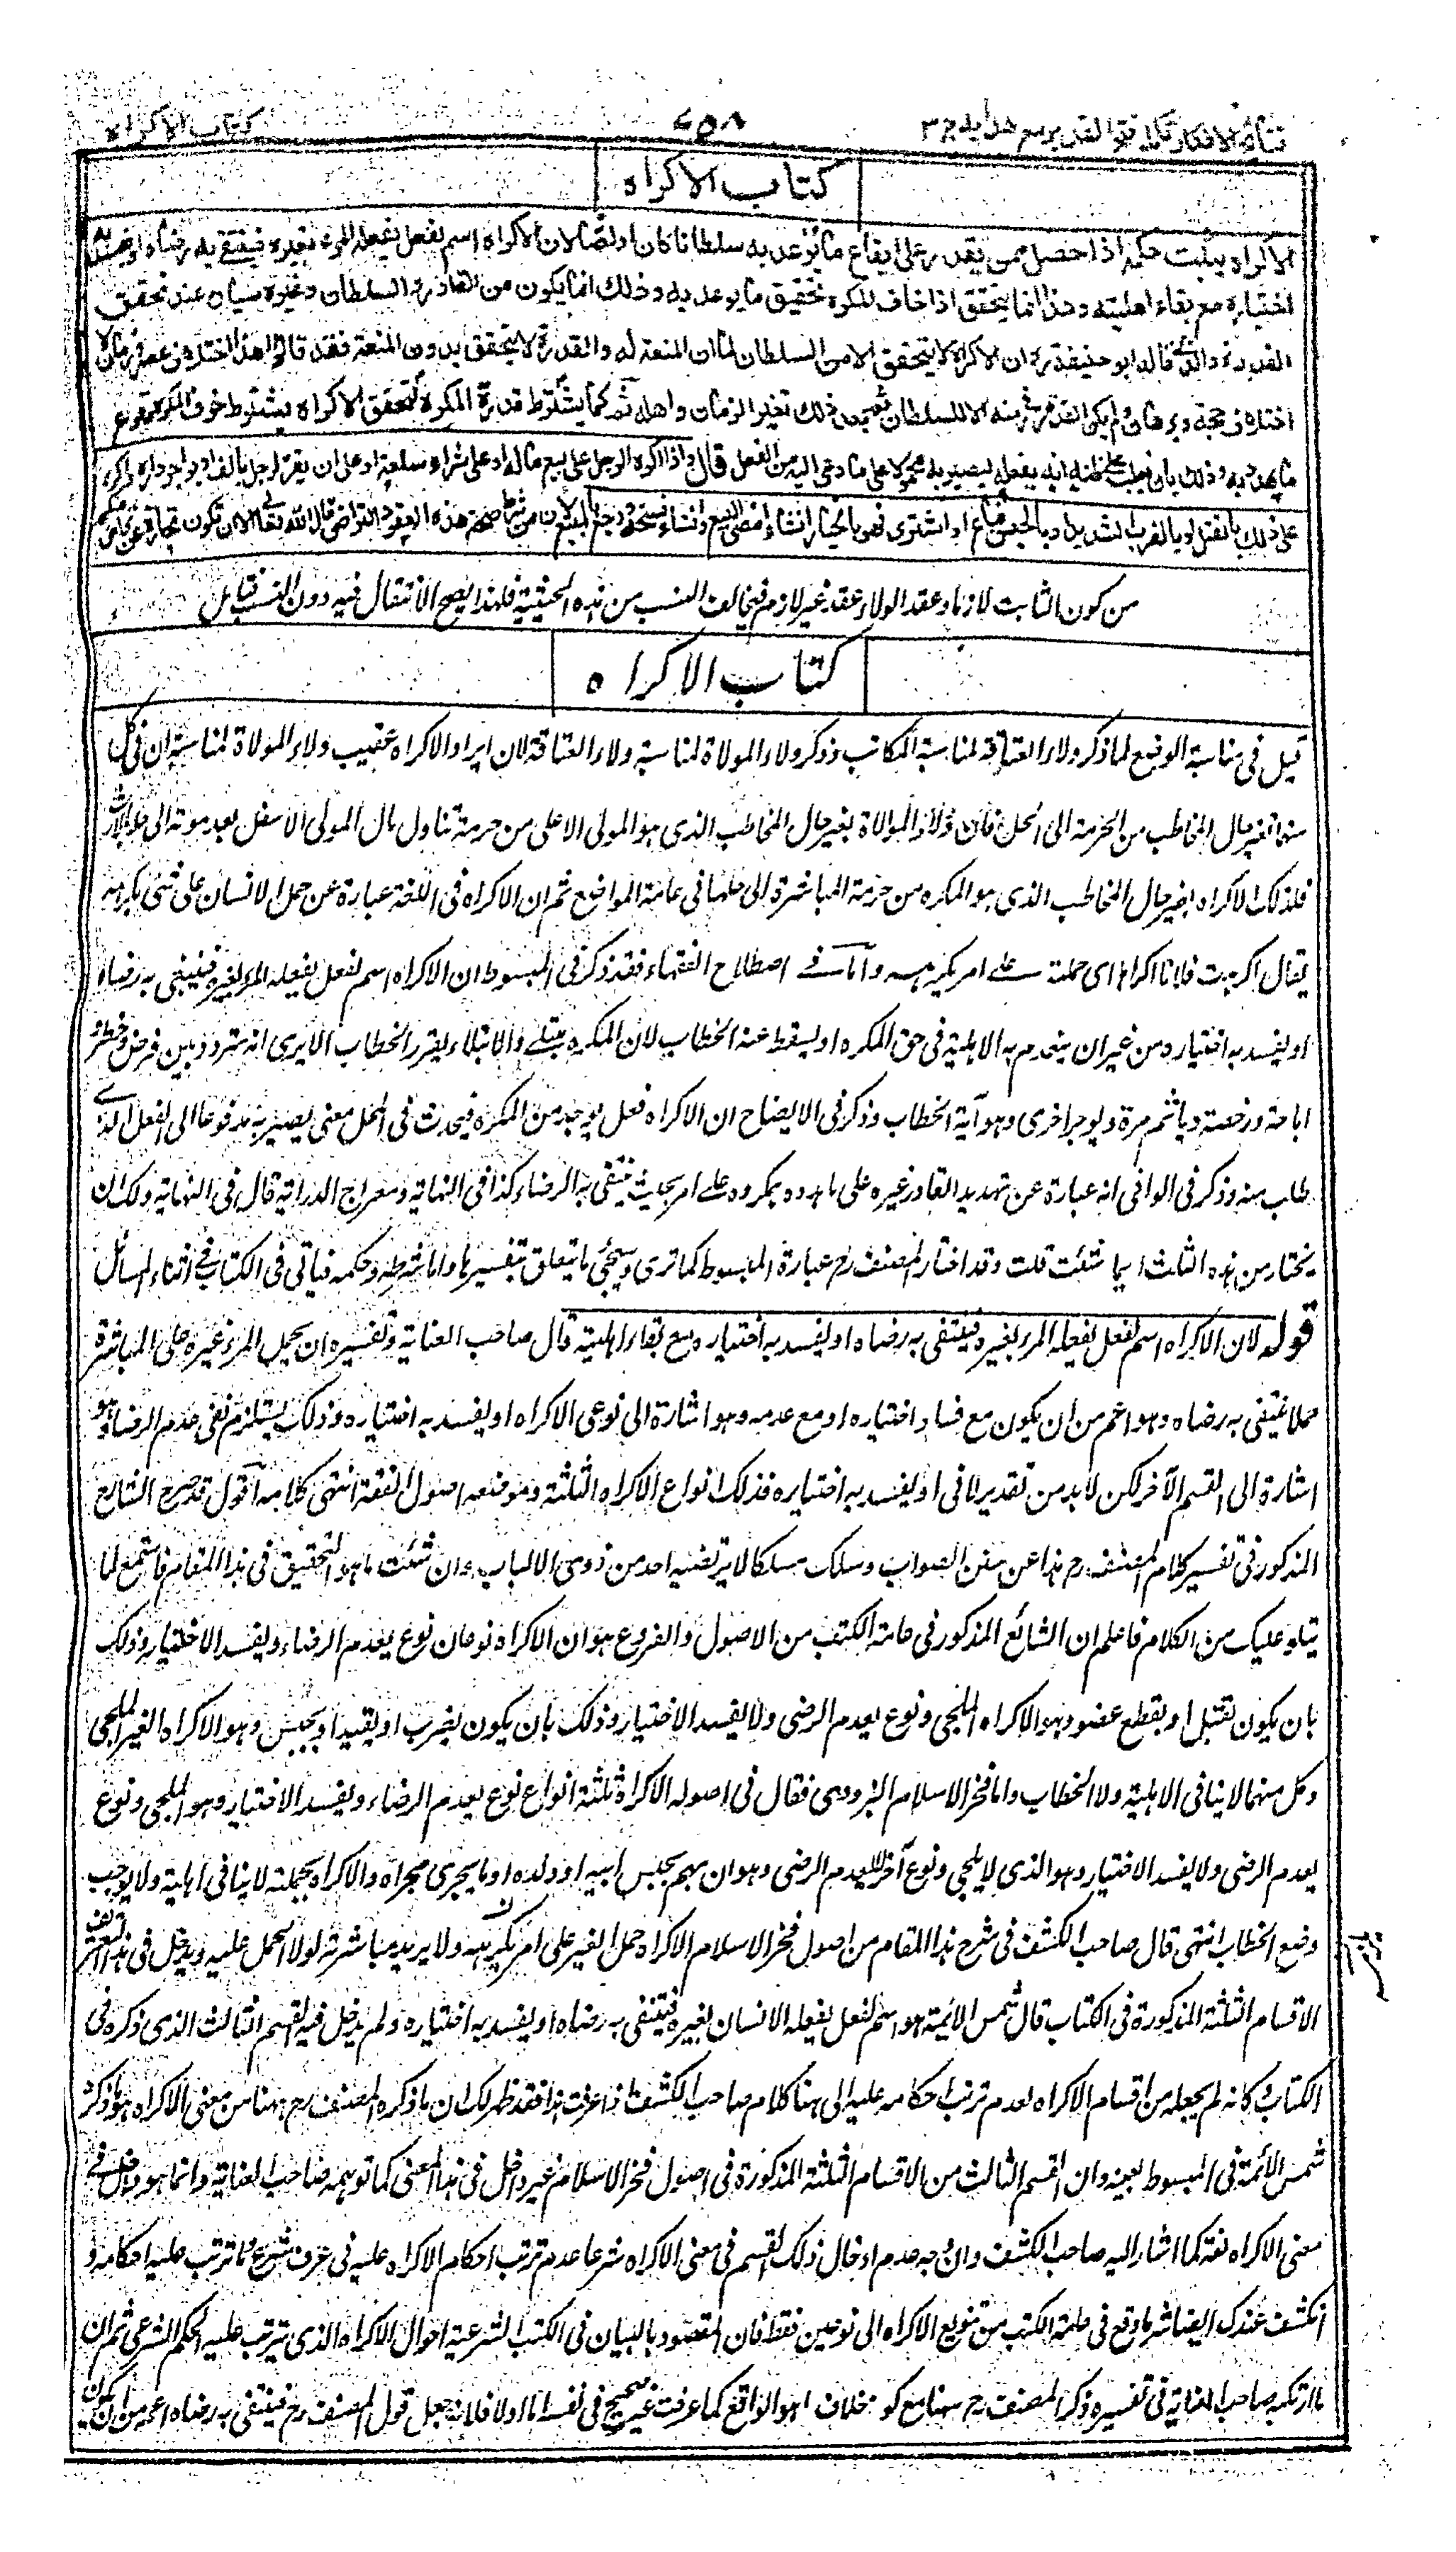 نتائج الافكار تكملة فتح القدير مع هداية ج ٣
٧٥٨
كتاب الاكراه
كتاب الاكراه
الاكراه يثبت حكمه اذا حصل ممن يقدر على ايقاع ما يوعد به سلطانا كان او لصا لان الاكراه اسم لفعل يفعله المرء بغيره فينتفى به رضاه او يفسد به
اختياره مع بقاء اهليته وهذا انما يتحقق اذا خاف المكره تحقيق ما يوعد به وذلك انما يكون من القادر والسلطان وغيره سيان عند تحقق
القدرة والذى قاله ابو حنيفة رح ان الاكراه لا يتحقق الا من السلطان لما ان المنعة له والقدرة لا يتحقق بدون المنعة فقد قالوا هذا اختلاف عصر وزمان لا
اختلاف حجة وبرهان ولم يكن القدرة فى زمنه الا للسلطان ثم بعد ذلك تغير الزمان واهله ثم كما يشترط قدرة المكره لتحقق الاكراه يشترط خوف المكره وقوع
ما يهدد به وذلك بان يغلب على ظنه انه يفعله ليصير به محمولا على ما دعى اليه من الفعل قال واذا اكره الرجل على بيع ماله او على شراء سلعة او على ان يقر لرجل بالف او يواجر داره واكره
على ذلك بالقتل او بالضرب الشديد او بالحبس فباع او اشترى فهو بالخيار ان شاء امضى البيع وان شاء فسخه ورجع بالمبيع لان من شرط صحة هذه العقود التراضى قال الله تعالى الا ان تكون تجارة عن تراض منكم
من كون الثابت لازما وعقد الولاء عقد غير لازم فيخالف النسب من هذه الحيثية فلهذا يصح الانتقال فيه دون النسب فتامل
كتاب الاكراه
قيل فى مناسبة الوضع لما ذكر ولاء العتاقة لمناسبة المكاتب وذكر ولاء الموالاة لمناسبة ولاء العتاقة لان ايراد الاكراه عقيب ولاء الموالاة لمناسبة ان فى كل
منهما تغير حال المخاطب من الحرمة الى الحل فان ولاء الموالاة يغير حال المخاطب الذى هو المولى الاعلى من حرمة تناول مال المولى الاسفل بعد موته الى حله بالارث
فلذلك الاكراه يغير حال المخاطب الذى هو المكره من حرمة المباشرة الى حلها فى عامة المواضع ثم ان الاكراه فى اللغة عبارة عن حمل الانسان على شئ يكرهه
يقال اكرهت فلانا اكراها اى حملته على امر يكرهه واما فى اصطلاح الفقهاء فقد ذكر فى المبسوط ان الاكراه اسم لفعل يفعله المرء بغيره فينتفى به رضاه
او يفسد به اختياره من غير ان ينعدم به الاهلية فى حق المكره او يسقط عنه الخطاب لان المكره مبتلى والابتلاء يقرر الخطاب الا يرى انه متردد بين فرض وحظر و
اباحة ورخصة وياثم مرة ويوجر اخرى وهو آية الخطاب وذكر فى الايضاح ان الاكراه فعل يوجد من المكره فيحدث فى المحل معنى يصير به مدفوعا الى الفعل الذى
طلب منه وذكر فى الوافى انه عبارة عن تهديد القادر غيره على ما هدده بمكروه على امر بحيث ينتفى به الرضاء كذا فى النهاية ومعراج الدراية قال فى النهاية ولك ان
يختار من هذه الثلث ايما شئت قلت وقد اختار المصنف رح عبارة المبسوط كما ترى وسيجئ ما يتعلق بتفسيرها واما شرطه وحكمه فياتى فى الكتاب فى اثناء المسائل
قوله لان الاكراه اسم لفعل يفعله المرء بغيره فينتفى به رضاه او يفسد به اختياره مع بقاء اهليته قال صاحب العناية وتفسيره ان يحمل المرء غيره على المباشرة
حملا ينتفى به رضاه وهو اعم من ان يكون مع فساد اختياره او مع عدمه وهو اشارة الى نوعى الاكراه او يفسد به اختياره وذلك يستلزم نفى عدم الرضاء وهو
اشارة الى القسم الآخر لكن لا بد من تقدير لا فى او يفسد به اختياره فذلك انواع الاكراه الثلثة وموضعه اصول الفقه انتهى كلامه اقول قد خرج الشارح
المذكور فى تفسير كلام المصنف رح هذا عن سنن الصواب وسلك مسلكا لا يرتضيه احد من ذوى الالباب وان شئت ما هو التحقيق فى هذا المقام فاستمع لما
يتلى عليك من الكلام فاعلم ان الشائع المذكور فى عامة الكتب من الاصول والفروع هو ان الاكراه نوعان نوع يعدم الرضاء ويفسد الاختيار وذلك
بان يكون بقتل او بقطع عضو وهو الاكراه الملجئ ونوع يعدم الرضى ولا يفسد الاختيار وذلك بان يكون بضرب او بقيد او بحبس وهو الاكراه الغير الملجئ
وكل منهما لا ينافى الاهلية ولا الخطاب واما فخر الاسلام البزدوى فقال فى اصوله الاكراه ثلثة انواع نوع يعدم الرضاء ويفسد الاختيار وهو الملجئ ونوع
يعدم الرضى ولا يفسد الاختيار وهو الذى لا يلجئ ونوع آخر لا يعدم الرضى وهو ان يهم بحبس ابيه او ولده او ما يجرى مجراه والاكراه بجملته لا ينافى اهلية ولا يوجب
وضع الخطاب انتهى قال صاحب الكشف فى شرح هذا المقام من اصول فخر الاسلام الاكراه حمل الغير على امر يكرهه ولا يريد مباشرته لولا الحمل عليه ويدخل فى هذا التعريف
الاقسام الثلثة المذكورة فى الكتاب قال شمس الائمة هو اسم لفعل يفعله الانسان بغيره فينتفى به رضاه او يفسد به اختياره ولم يدخل فيه القسم الثالث الذى ذكره فى
الكتاب وكانه لم يجعله من اقسام الاكراه لعدم ترتب احكامه عليه الى هنا كلام صاحب الكشف اذا عرفت هذا فقد ظهر لك ان ما ذكره المصنف رح ههنا من معنى الاكراه هو ما ذكره
شمس الائمة فى المبسوط بعينه وان القسم الثالث من الاقسام الثلثة المذكورة فى اصول فخر الاسلام غير داخل فى هذا المعنى كما توهمه صاحب العناية وانما هو داخل فى
معنى الاكراه لغة كما اشار اليه صاحب الكشف وان وجه عدم ادخال ذلك القسم فى معنى الاكراه شرعا عدم ترتب احكام الاكراه عليه فى عرف الشرع ما ترتب عليه احكامه و
انكشف عندك ايضا سر ما وقع فى عامة الكتب من تنويع الاكراه الى نوعين فقط فان المقصود بالبيان فى الكتب الشرعية احوال الاكراه الذى يترتب عليه الحكم الشرعى ثم ان
ما ارتكبه صاحب العناية فى تفسيره ذكر المصنف رح ههنا مع كونه مخالفا لما هو الواقع كما عرفت غير صحيح فى نفسه اما اولا فلانه جعل قول المصنف رح فينتفى به رضاه اعم من ان يكون